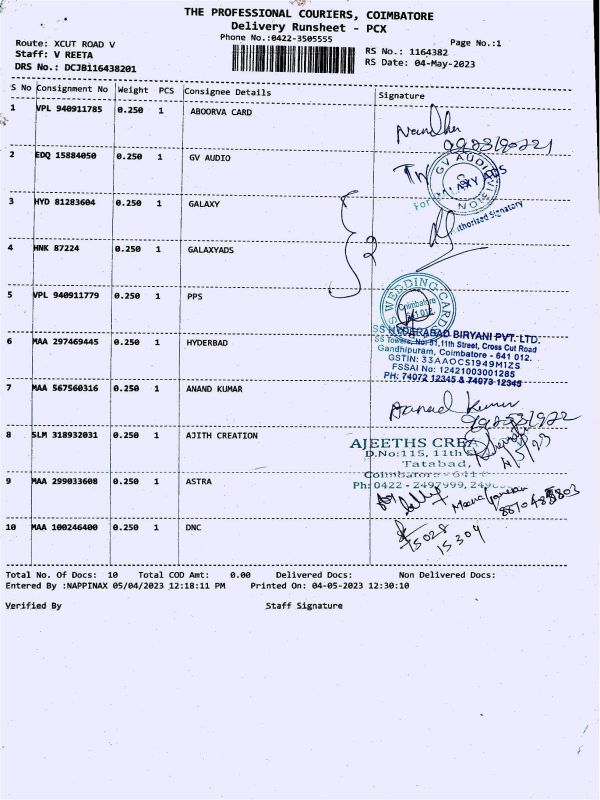 THE PROFESSIONAL COURIERS, COIMBATORE
Delivery Runsheet - PCX
Phone No.:0422-3505555
Page No.:1
Route: XCUT ROAD V
RS No.: 1164382
Staff: V REETA
RS Date: 04-May-2023
DRS No.: DCJB116438201
S No Consignment No Weight PCS Consignee Details Signature
1 VPL 940911785 0.250 1 ABOORVA CARD
Nandha
2 EDQ 15884050 0.250 1 GV AUDIO
GV AUDIO
3 HYD 81283604 0.250 1 GALAXY
For GALAXY ADS
Authorized Signatory
4 HNK 87224 0.250 1 GALAXYADS
2
5 VPL 940911779 0.250 1 PPS
WEDDING CARD
Coimbatore
641 012
6 MAA 297469445 0.250 1 HYDERBAD
SS HYDERABAD BIRYANI PVT. LTD.
SS Towers, No: 81,11th Street, Cross Cut Road
Gandhipuram, Coimbatore - 641 012.
GSTIN: 33AAOCS1949M1ZS
FSSAI No: 12421003001285
PH: 74072 12345 & 74073 12345
7 MAA 567560316 0.250 1 ANAND KUMAR
Aanand Kumar
8 SLM 318932031 0.250 1 AJITH CREATION
AJEETHS CREA
D.No:115, 11th
Tatabad,
Coimbatore - 641
Ph: 0422 - 2497999, 249
4/5/23
9 MAA 299033608 0.250 1 ASTRA
10 MAA 100246400 0.250 1 DNC
75028
15304
Total No. Of Docs: 10 Total COD Amt: 0.00 Delivered Docs: Non Delivered Docs:
Entered By :NAPPINAX 05/04/2023 12:18:11 PM Printed On: 04-05-2023 12:30:10
Verified By Staff Signature